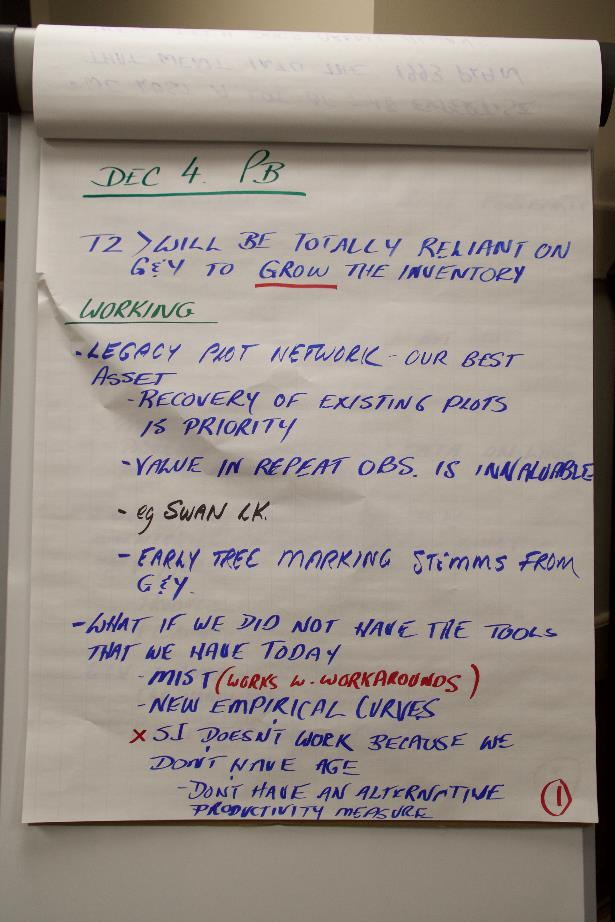 DEC 4. PB
T2 > WILL BE TOTALLY RELIANT ON
G&Y TO GROW THE INVENTORY
WORKING
- LEGACY PLOT NETWORK - OUR BEST
ASSET
- RECOVERY OF EXISTING PLOTS
IS PRIORITY
- VALUE IN REPEAT OBS. IS INNVALUABLE
- eg SWAN LK.
- EARLY TREE MARKING STEMMS FROM
G&Y.
- WHAT IF WE DID NOT HAVE THE TOOLS
THAT WE HAVE TODAY
- MIST (WORKS W. WORKAROUNDS)
- NEW EMPIRICAL CURVES
x S.I DOESN'T WORK BECAUSE WE
DON'T HAVE AGE
- DON'T HAVE AN ALTERNATIVE
PRODUCTIVITY MEASURE
1